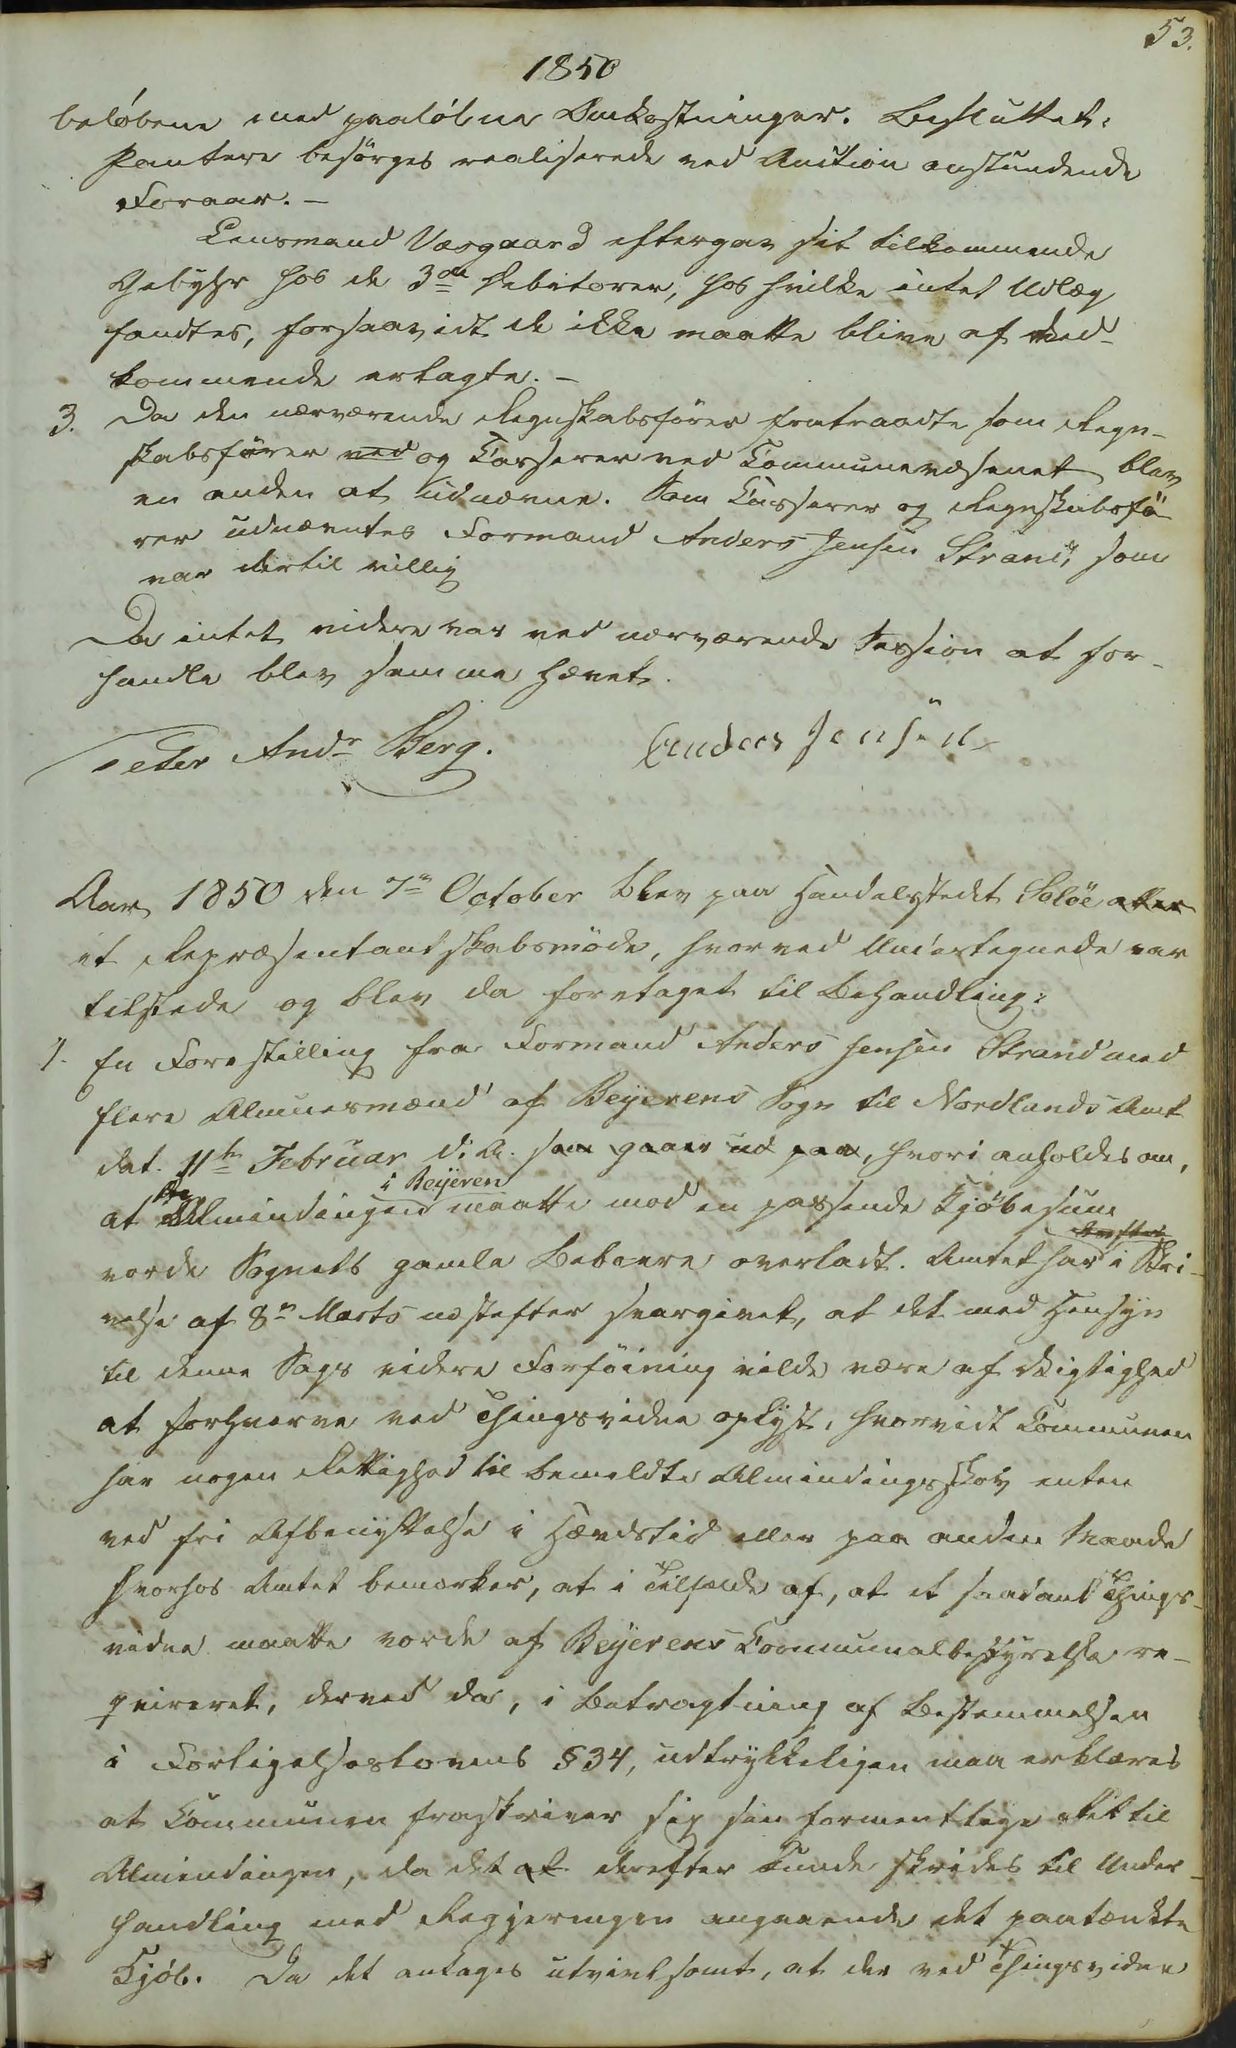 53.
1850
beløbene med paaløbne Omkostninger. Besluttet:
Pantene besørges realiserede ved Auction anstundende
Foraar. –
Lensmand Vaagaard eftergav sit tilkommende
Gebyhr hos de 3de Debitorer, hos hvilke intet Udlæg
fandtes, forsaavidt de ikke maatte blive af Ved-
kommende erlagte. –
3. Da den nærværende Regnskabsfører fratraadte som Regn-
skabsfører ved og Casserer ved Communevæsenet blev
en anden at udnævne. Som Casserer og Regnskabsfø
rer udnævntes Formand Anders Jensen Strand, som
var dertil villig
Da intet videre var ved nærværende Session at for-
handle blev samme hævet.
Peter Andr Berg. Anders Jensen
Aar 1850 den 7de October blev paa Handelstedet Soløe
et Repræsentantskabsmøde, hvorved Undertegnede var
tilstede og blev da foretaget til Behandling:
1. En Forestilling fra Formand Anders Jensen Strand med
flere Almuesmænd af Beyerens Sogn til Nordlands Amt
dat. 11te Februar d: A. som gaaer ud paa, hvori anholdes om,
i Beijeren
at Almindingen maatte mod en passende Kjøbesum
vorde Sognets gamle Beboere overladt. Amtet har i Skri-
velse af 8de Marts næstefter svargivet, at det med Hensyn
til denne Sags videre Forføining vilde være af Vigtighed
at forhverve ved Thingsvidne oplyst, hvorvidt Communen
har nogen Rettighed til bemeldte Almindingsskov enten
ved fri Afbenyttelse i Hævdstid eller paa anden Maade
hvorhos Amtet bemærker, at i Tilfælde af, at et saadant Things-
vidne maatte vorde af Beyerens Communalbestyrelse re-
qvireret, derved da, i Betragtning af Bestemmelsen
i Forligelseslovens § 34, udtrykkeligen maa erklæres
at Communen fraskriver sig sin formentlige Ret til
Almindingen, da det at derefter kunde skrides til Under-
handling med Regjeringen angaaende det paatænkte
Kjøb. Da det antages utvivlsomt, at der ved Thingsvidne